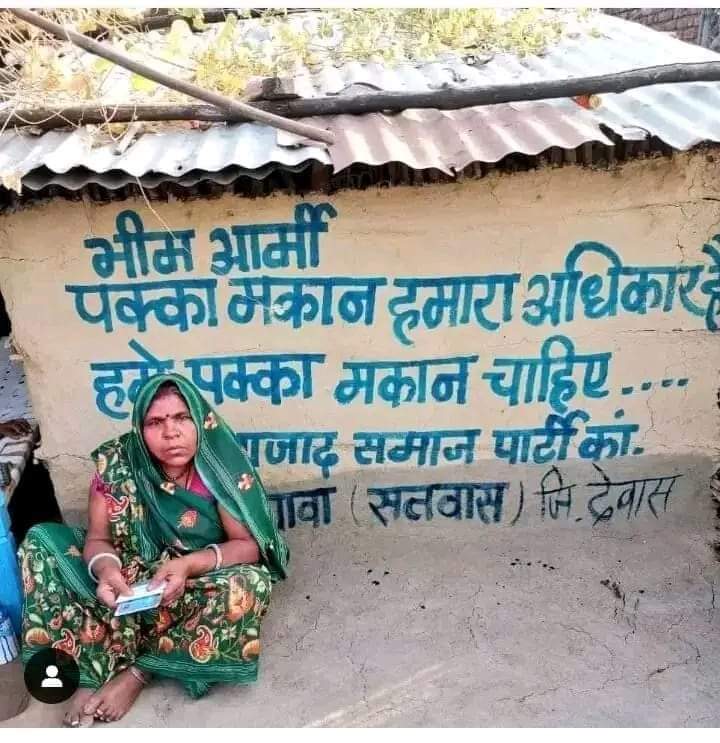 भीम आर्मी
पक्का मकान हमारा अधिकार है
हमे पक्का मकान चाहिए ....
समाज पार्टी कां.
(सतवास) जि. देवास